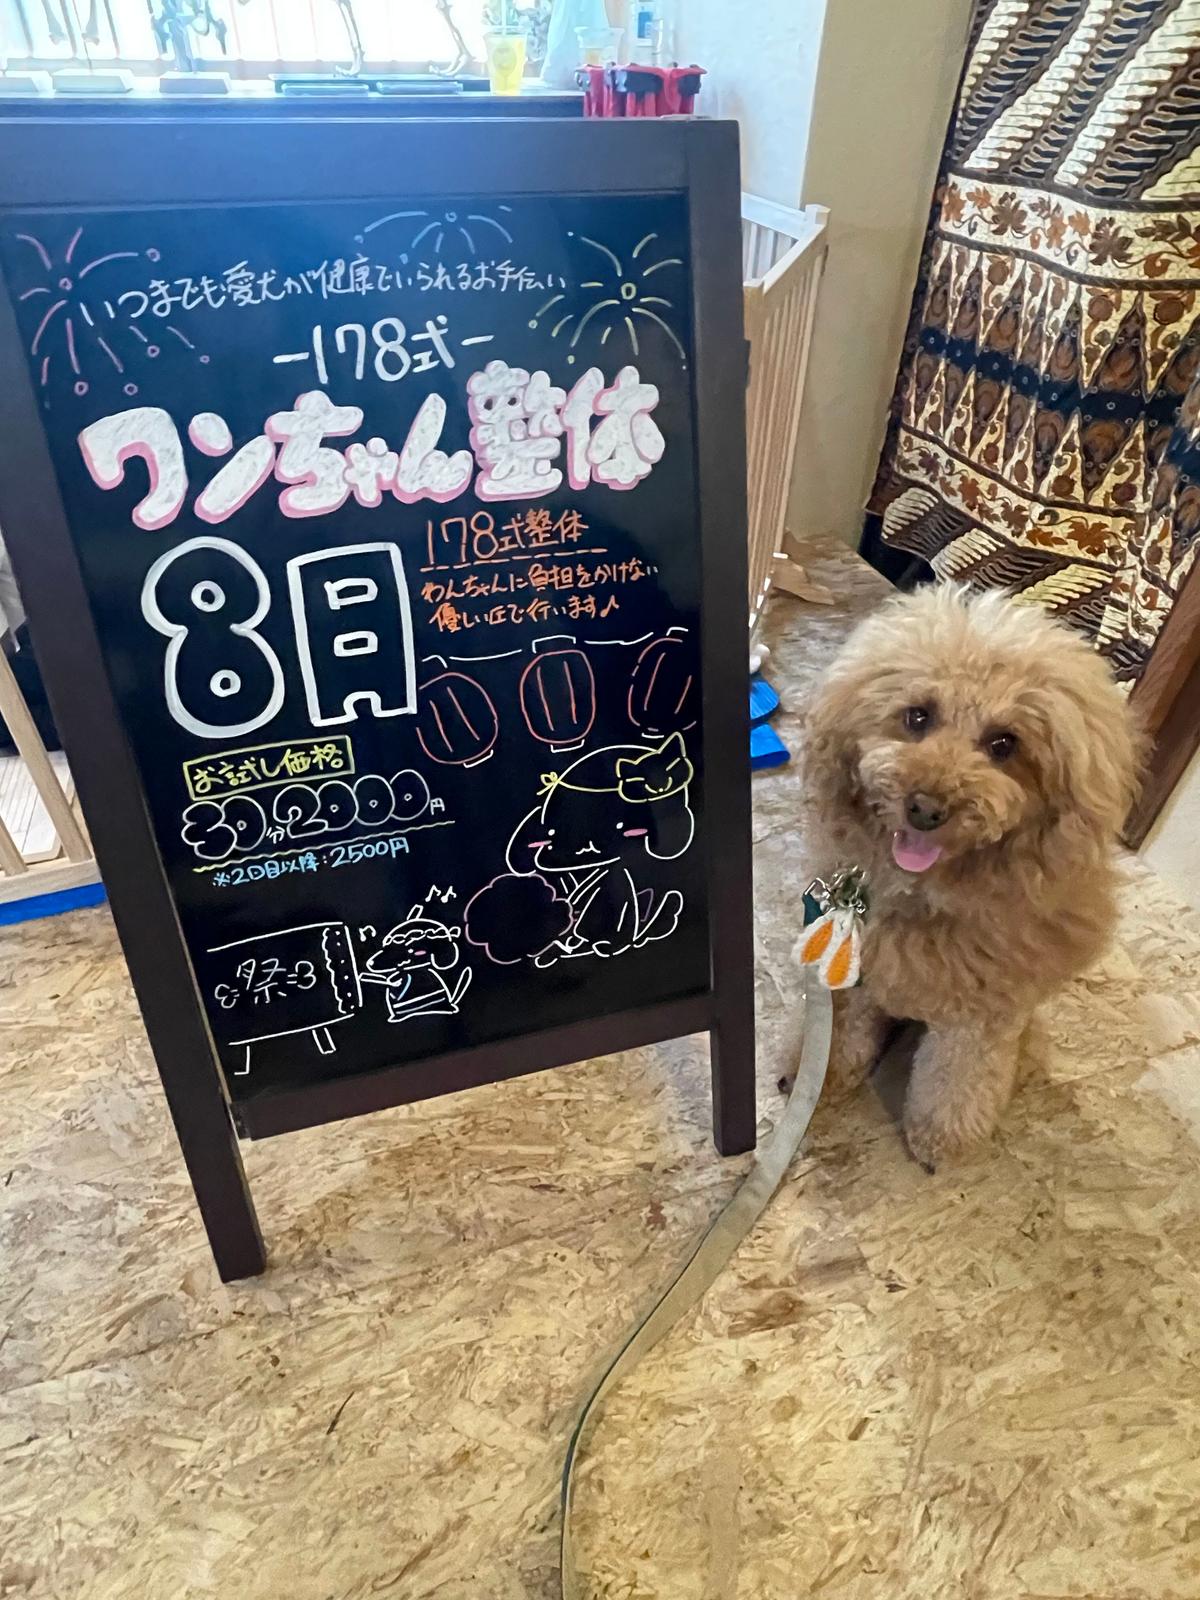 いつまでも愛犬が健康でいられるお手伝い
-178式-
ワンちゃん整体
8月
178式整体
わんちゃんに負担をかけない
優しい圧で行います♪
お試し価格
30分2000円
※2回目以降:2500円
祭